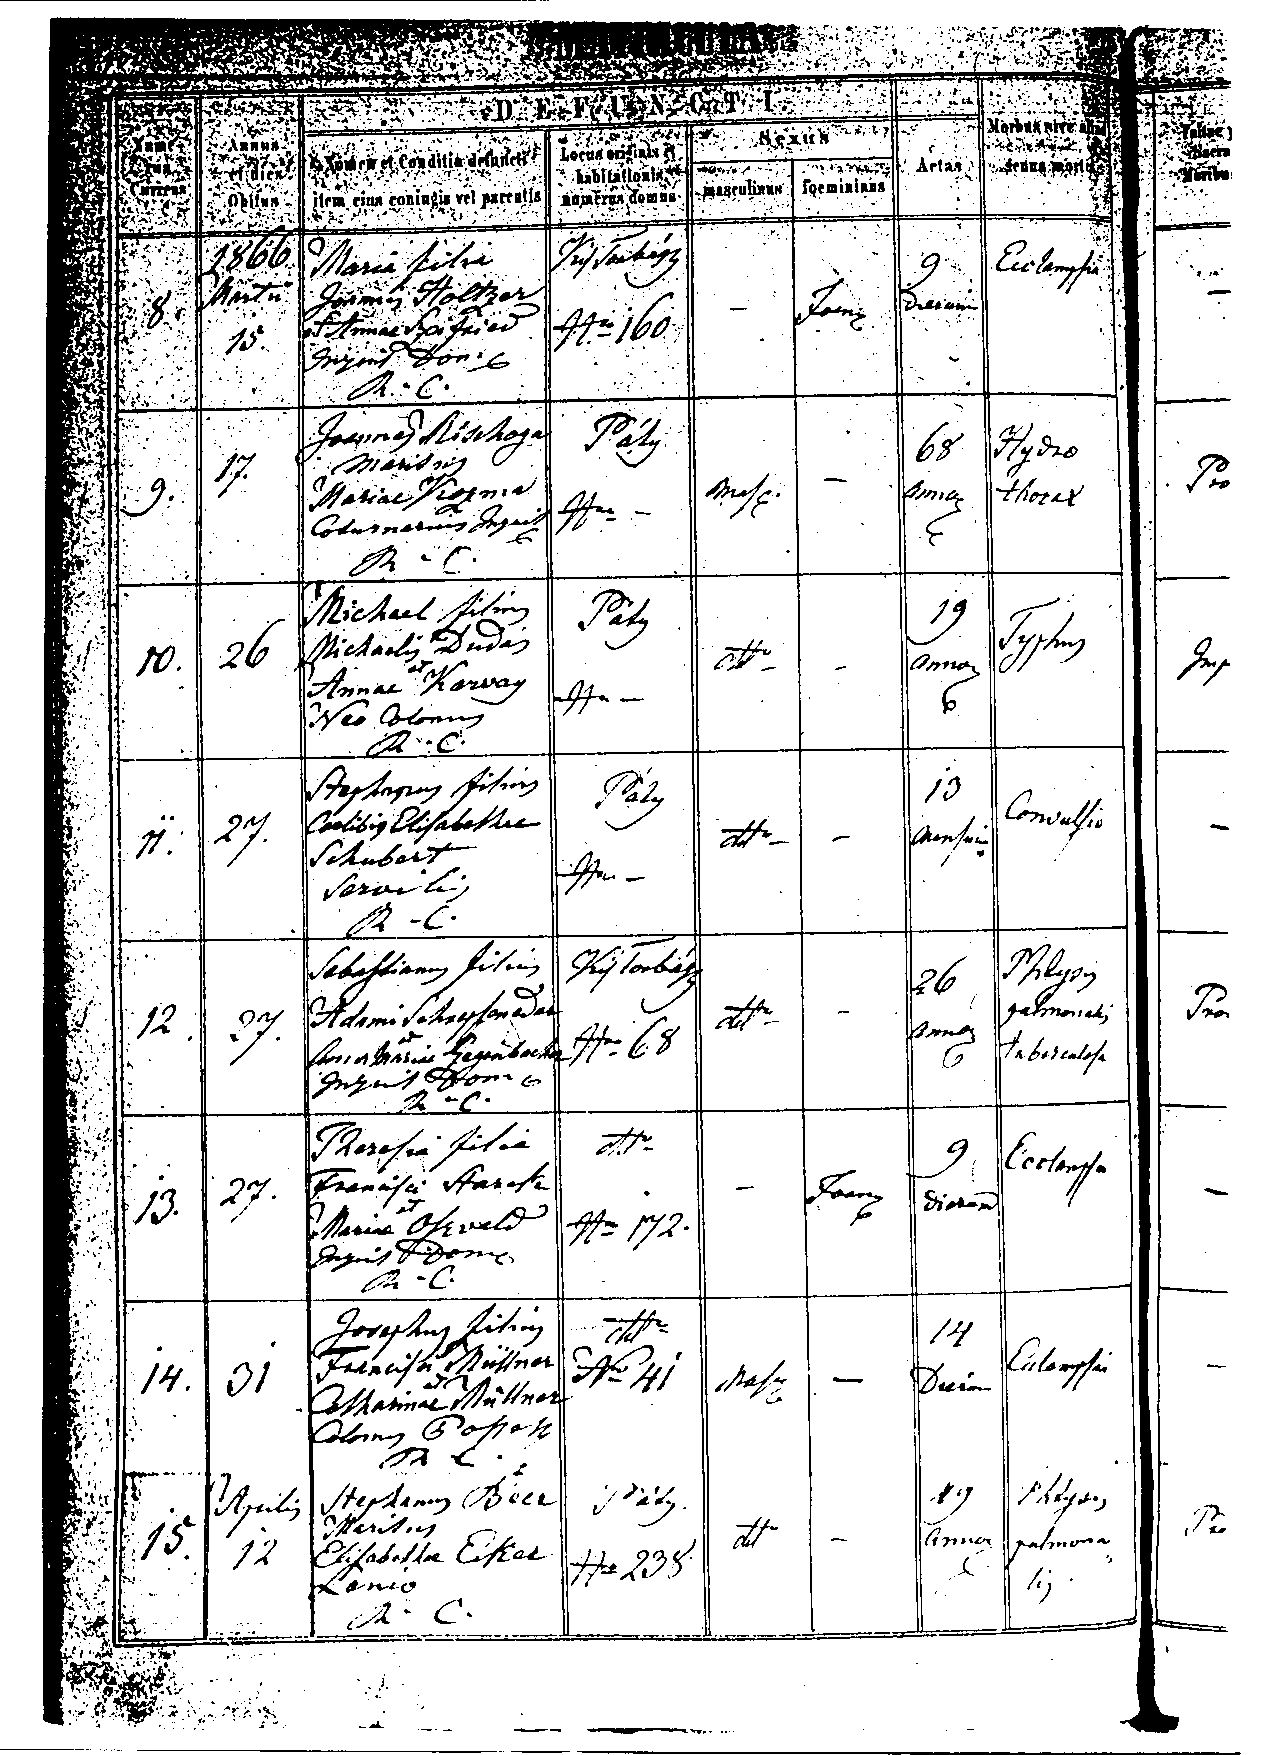 DEFUNCTI
Nume-
rus
Currens
Annus
et dies
Obitus
Nomen et Conditio defuncti
item eius coniugis vel parentis
Locus originis et
habitationis
numerus domus
Sexus
masculinus
foemininus
Aetas
Morbus sive alia
genus mortis
8.
1866
Martii
15.
Maria filia
Joannis Holtzer
et Annae
Inquil Dom.
R. C.
Kis Torbágy
Nro 160
—
Foem
9
Dierum
Ecclampsia
—
9.
17.
Joannes
maritus
Mariae Kozma
Inquil
R. C.
Páty
Nro —
Masc.
—
68
Annor
Hydro
thorax
Pro
10.
26
Michael filius
Michaelis Dudás
et
Annae Karvay
Neo Colonus
R. C.
Páty
Nro —
dtto
—
19
Annor
Typhus
Imp
11.
27.
Stephanus filius
Coelibis Elisabethae
Schubert
Servilis
R. C.
Páty
Nro —
dtto —
—
13
Mensium
Convulsio
—
12.
27.
Sebastianus filius
Adami
et
Anna Mariae Gegenbacher
Inquil Dom
R. C.
Kis Torbágy
Nro 68
dtto
—
26
Annor
Phtysis
pulmonalis
tuberculosa
Pro
13.
27.
Theresia filia
Francisci Starck
et
Mariae Oswald
Inquil Dom
R. C.
dtto
Nro 172.
—
Foem
9
Dierum
Ecclampsia
—
14.
31
Josephus filius
Francisci Müllner
et
Catharinae Müllner
Colonus
R. C.
dtto
Nro 41
Masc
—
14
Dierum
Eclampsia
—
15.
Aprilis
12
Stephanus
Maritus
Elisabethae Eiker
Lanio
R. C.
Páty.
Nro 238
dtto
—
49
Annor
Phtysis
pulmona
lis
Pro